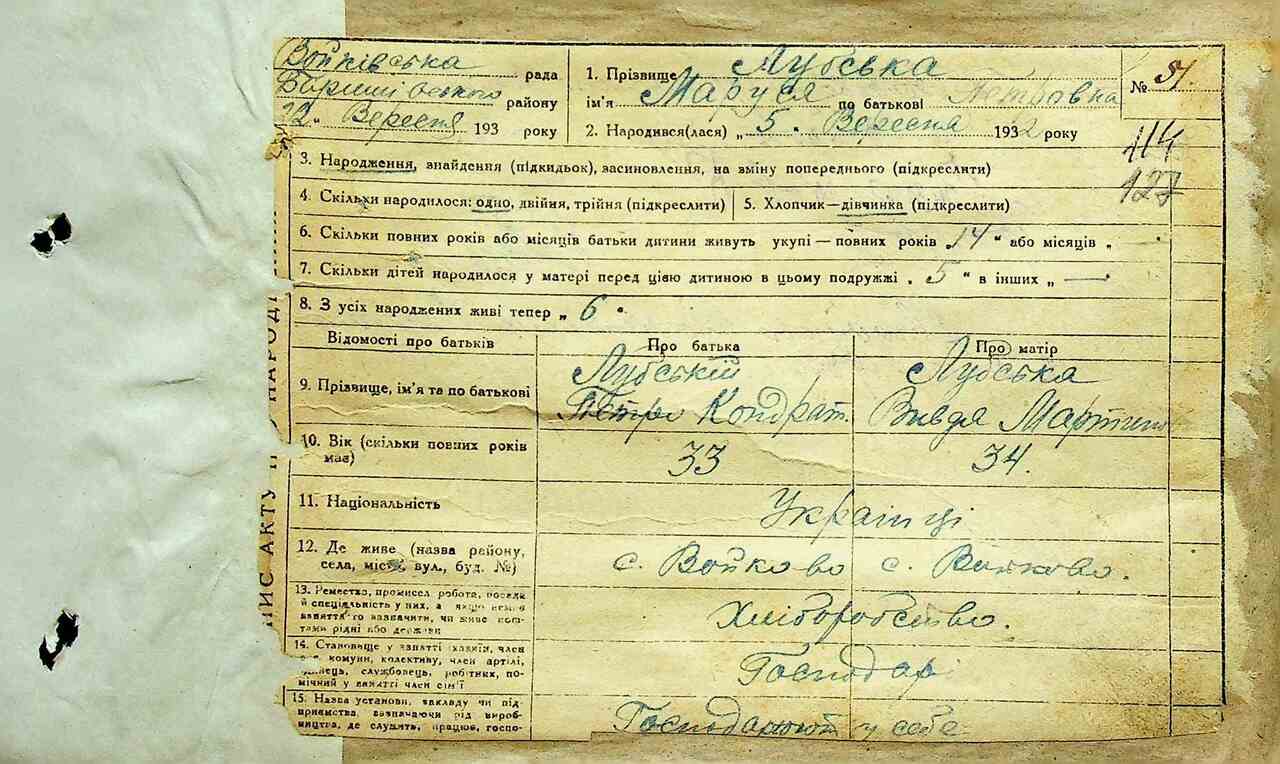 Войківська рада
Баришівського району
12 „ Вересня 193 року
1. Прізвище Лубська
ім'я Маруся по батькові Петровна
2. Народився(лася) „ 5 „ Вересня 1932 року
№ 51
114
127
3. Народження, знайдення (підкидьок), засиновлення, на зміну попереднього (підкреслити)
4. Скільки народилося: одно, двійня, трійня (підкреслити)
5. Хлопчик—дівчинка (підкреслити)
6. Скільки повних років або місяців батьки дитини живуть укупі — повних років „ 14 “ або місяців „
7. Скільки дітей народилося у матері перед цією дитиною в цьому подружжі „ 5 “ в інших „ —
8. З усіх народжених живі тепер „ 6 “
Відомості про батьків
Про батька
Про матір
9. Прізвище, ім'я та по батькові
Лубський
Петро Кондрат.
Лубська
Вивдя Мартин
10. Вік (скільки повних років
має)
33
34.
11. Національність
Українці
12. Де живе (назва району,
села, міста, вул., буд. №)
с. Войково
с. Войково.
13. Ремество, промисел робота, посада
й спеціяльність у них, а якщо нема
заняття то зазначити, чи живе кош-
тами рідні або держави
Хліборобство.
14. Становище у занятті (хазяїн, член
комуни, колективу, член артілі,
службовець, робітник, по-
мічний у занятті член сім'ї
Господар
15. Назва установи, закладу чи під-
приємства, зазначаючи рід вироб-
ництва, де служить, працює, госпо-
Господарюют у себе
ПИС АКТУ П О НАРОДІ